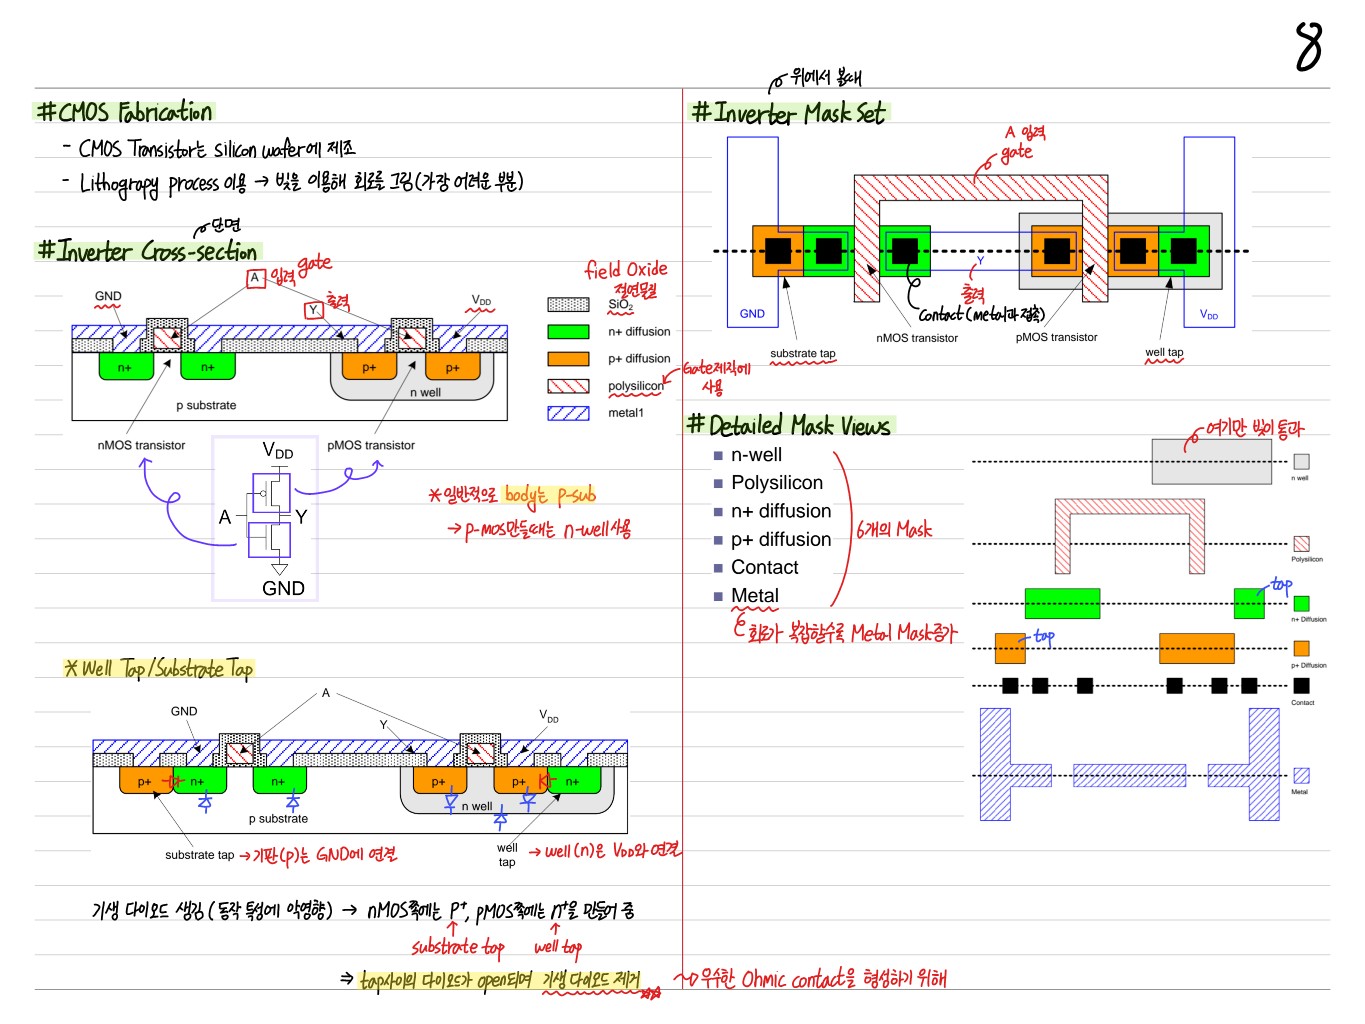 8
#CMOS Fabrication
- CMOS Transistor는 silicon wafer에 제조
- Lithograpy process 이용 → 빛을 이용해 회로를 그림 (가장 어려운 부분)
단면
#Inverter Cross-section
A 입력 gate
GND
Y 출력
VDD
n+
n+
p+
p+
n well
p substrate
nMOS transistor
pMOS transistor
field Oxide
절연물질
SiO2
n+ diffusion
p+ diffusion
polysilicon
Gate제작에
사용
metal1
VDD
A
Y
GND
*일반적으로 body는 p-sub
→ p-mos만들때는 n-well사용
*Well Tap/Substrate Tap
A
GND
Y
VDD
p+
n+
n+
p+
p+
n+
n well
p substrate
substrate tap → 기판(p)는 GND에 연결
well
tap
→ well(n)은 VDD와 연결
기생 다이오드 생김 (동작 특성에 악영향) → nMOS쪽에는 P+, pMOS쪽에는 n+을 만들어 줌
substrate tap
well tap
⇒ tap사이의 다이오드가 open되며 기생 다이오드 제거
우수한 Ohmic contact을 형성하기 위해
위에서 볼때
#Inverter Mask Set
A 입력
gate
Y
출력
Contact (metal과 접촉)
GND
VDD
nMOS transistor
pMOS transistor
substrate tap
well tap
#Detailed Mask Views
n-well
Polysilicon
n+ diffusion
p+ diffusion
Contact
Metal
6개의 Mask
회로가 복잡할수록 Metal Mask증가
여기만 빛이 통과
n well
Polysilicon
tap
n+ Diffusion
tap
p+ Diffusion
Contact
Metal